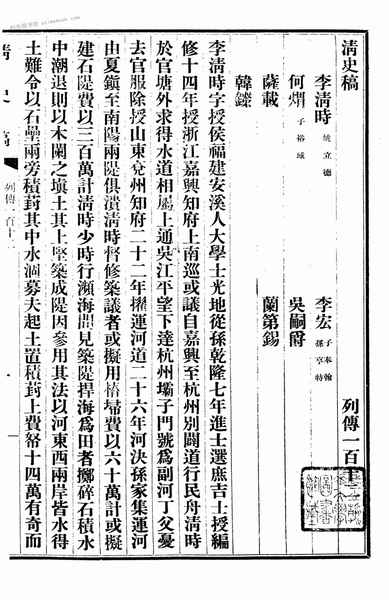 清史稿
列傳一百十二
李清時 姚立德
李宏 子奉翰 孫亨特
何煟 子裕城
吳嗣爵
薩載
蘭第錫
韓鑅
李清時字授侯福建安溪人大學士光地從孫乾隆七年進士選庶吉士授編
修十四年授浙江嘉興知府上南巡或議自嘉興至杭州別闢道行民舟清時
於官塘外求得水道相屬上通吳江平望下達杭州壩子門號為副河丁父憂
去官服除授山東兗州知府二十二年擢運河道二十六年河決孫家集運河
由夏鎮至南陽兩隄俱潰清時督修築議者或擬用樁埽費以六十萬計或擬
建石隄費以三百萬計清時少時行瀕海間見築隄捍海為田者擲碎石積水
中潮退則以木闌之填土其上堅築成隄因參用其法以河東西兩岸皆水得
土難令以石壘兩旁積葑其中水涸募夫起土置積葑上費帑十四萬有奇而
清史稿
列傳一百十二